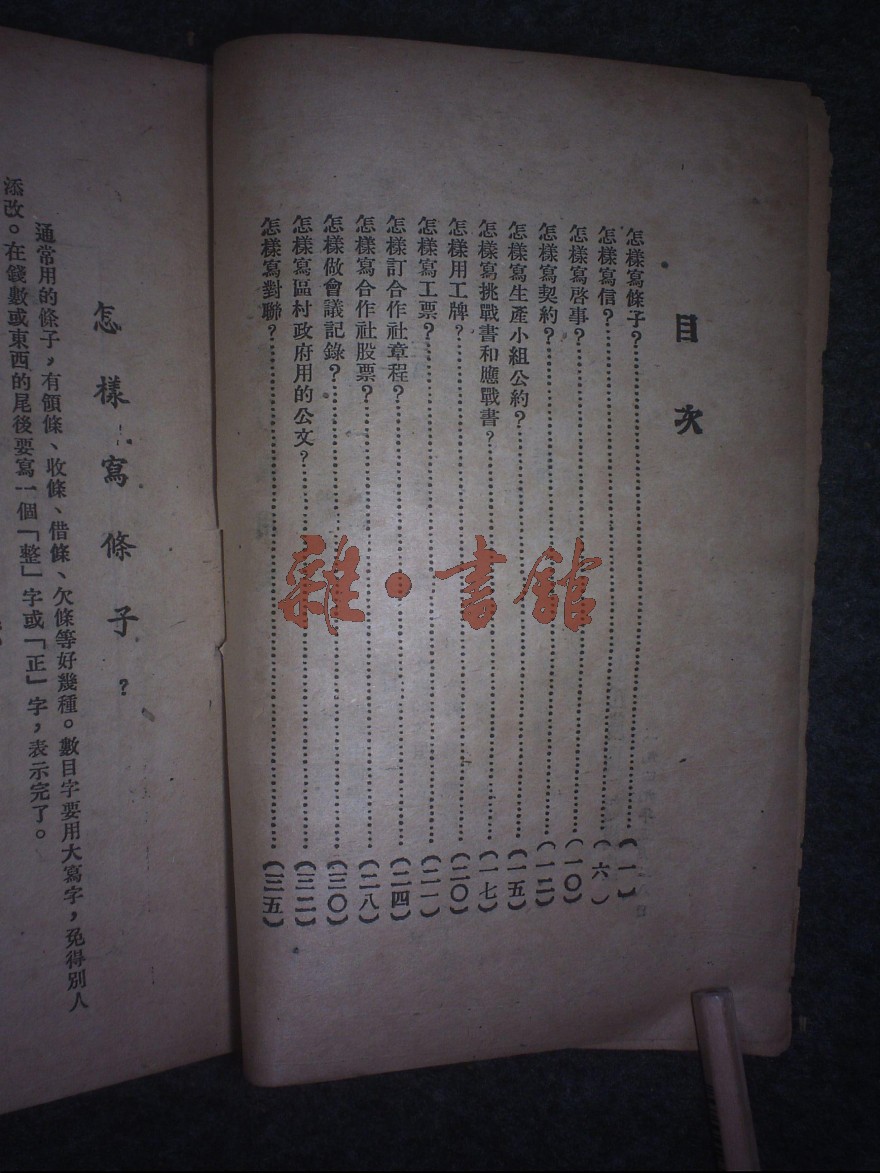 目次
怎樣寫條子？……（一）
怎樣寫信？……（六）
怎樣寫啓事？……（一〇）
怎樣寫契約？……（一二）
怎樣寫生產小組公約？……（一五）
怎樣寫挑戰書和應戰書？……（一七）
怎樣用工牌？……（二〇）
怎樣寫工票？……（二一）
怎樣訂合作社章程？……（二四）
怎樣寫合作社股票？……（二八）
怎樣做會議記錄？……（三〇）
怎樣寫區村政府用的公文？……（三二）
怎樣寫對聯？……（三五）
雜·書館
怎樣寫條子？
通常用的條子，有領條、收條、借條、欠條等好幾種。數目字要用大寫字，免得別人
添改。在錢數或東西的尾後要寫一個「整」字或「正」字，表示完了。